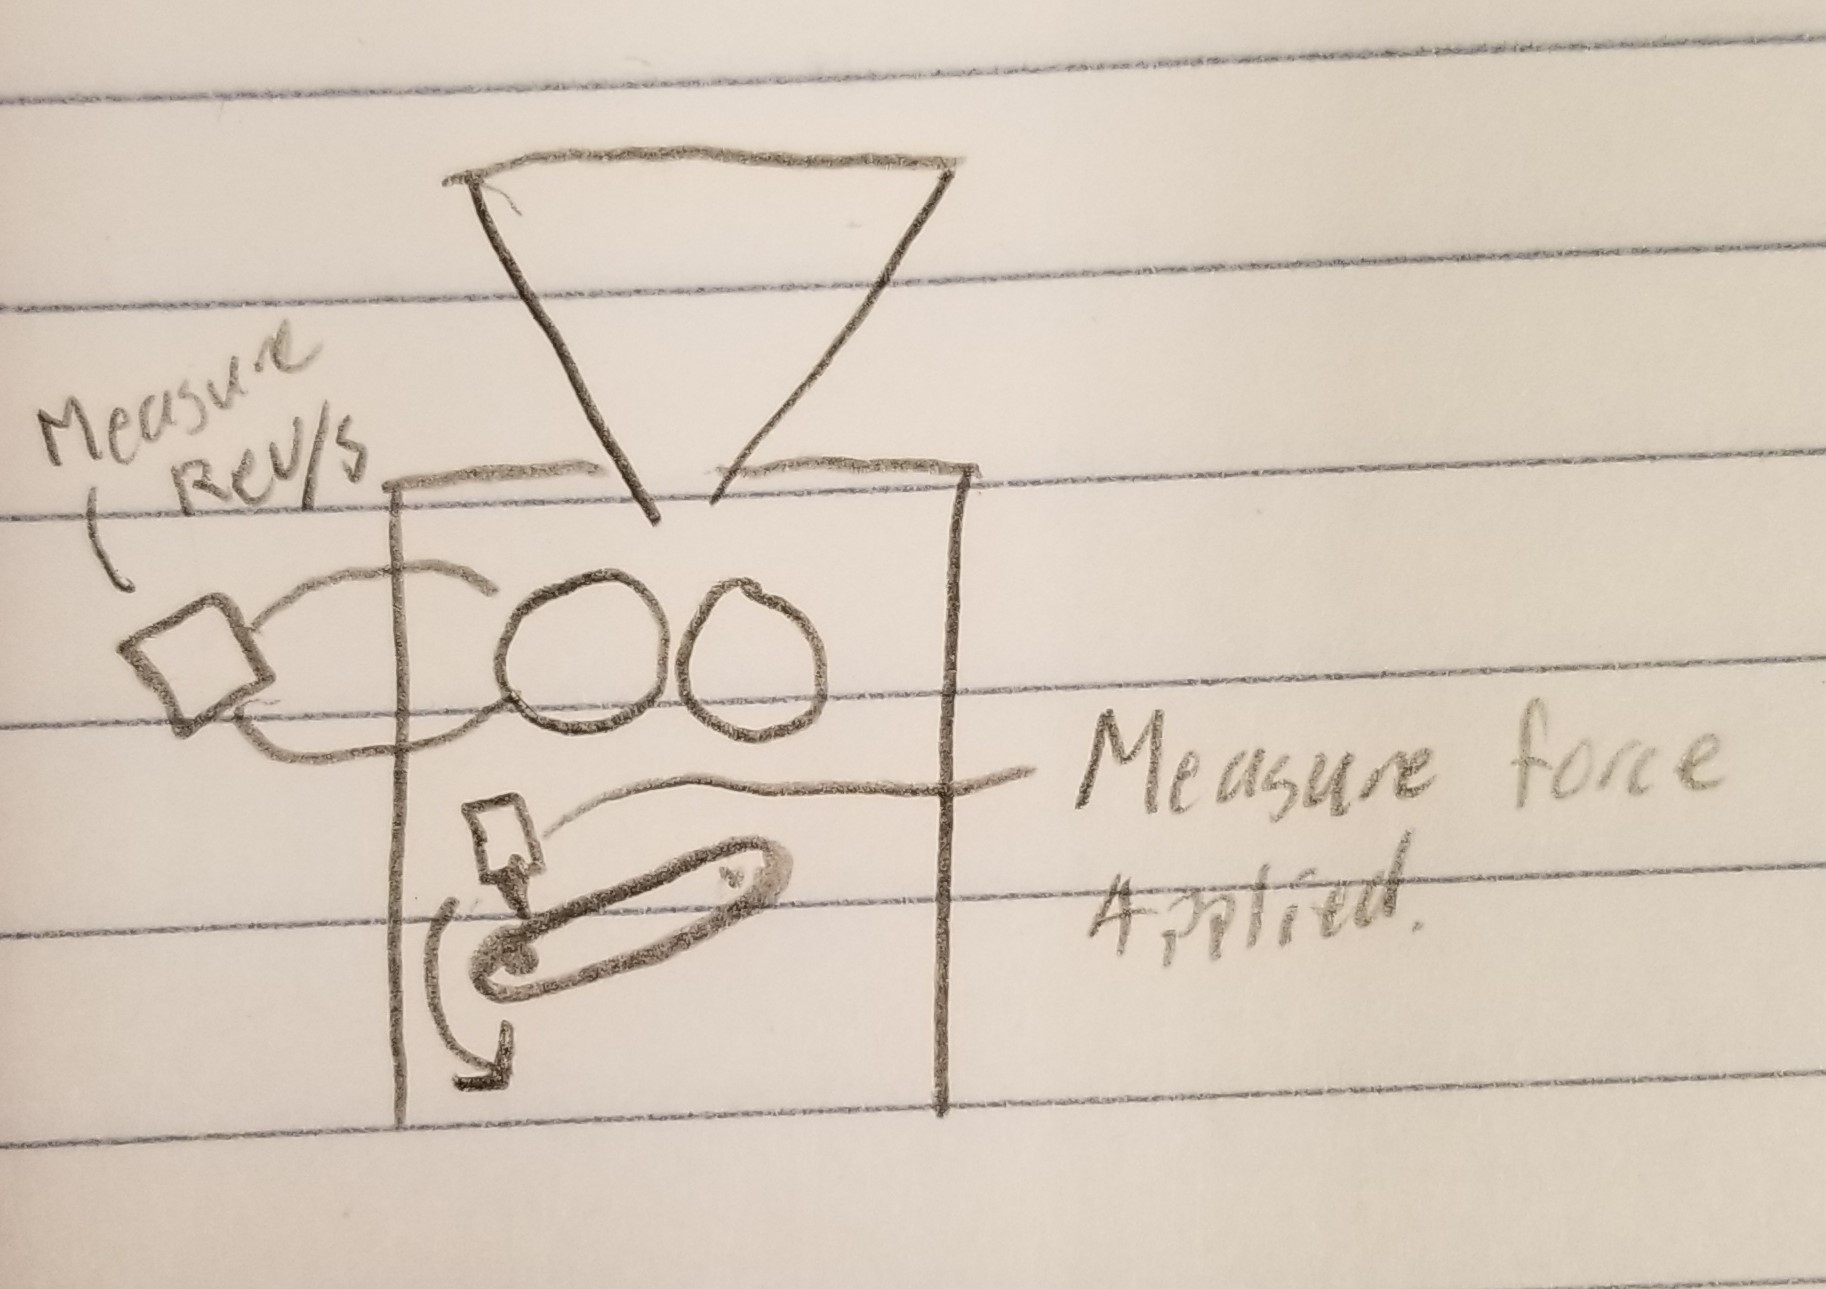 Measure
Rev/s
Measure force
Applied.